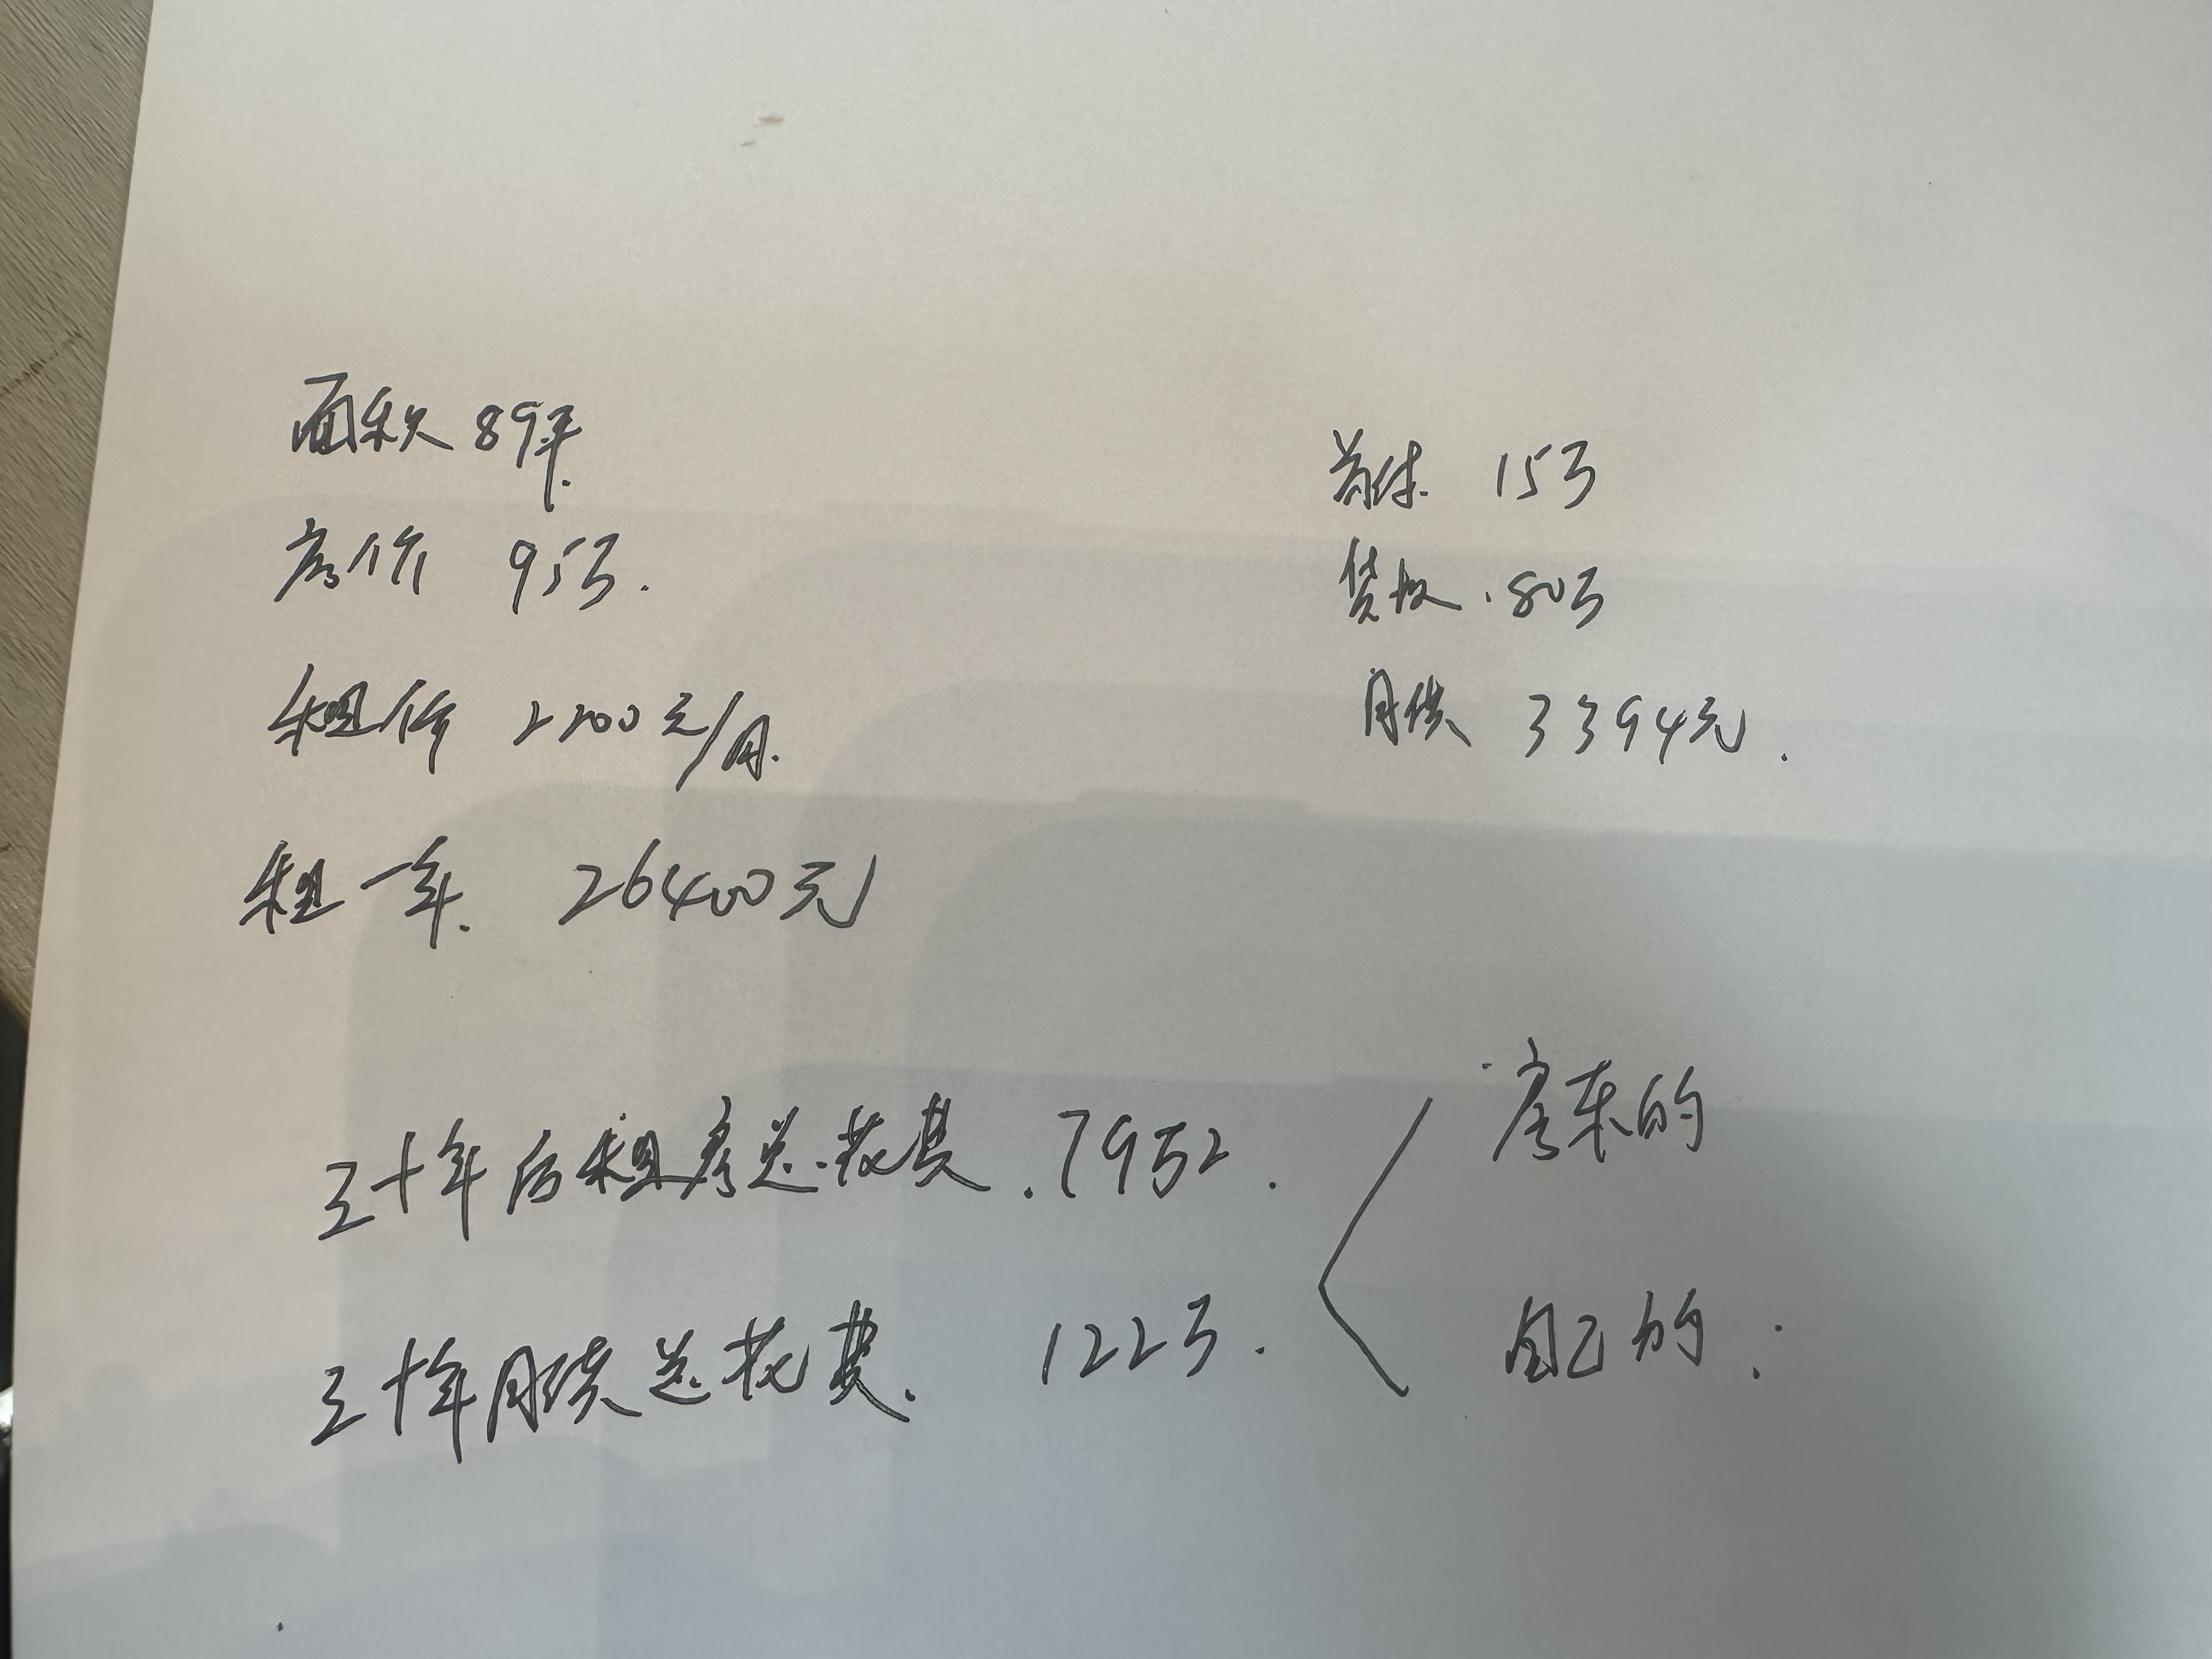 面积 89平.
房价 95万.
租价 2200元/月.
租一年. 26400元
首付. 15万
贷款. 80万
月供 3394元.
三十年后租房总花费. 79万2.
三十年月供总花费. 122万.
房东的
自己的.